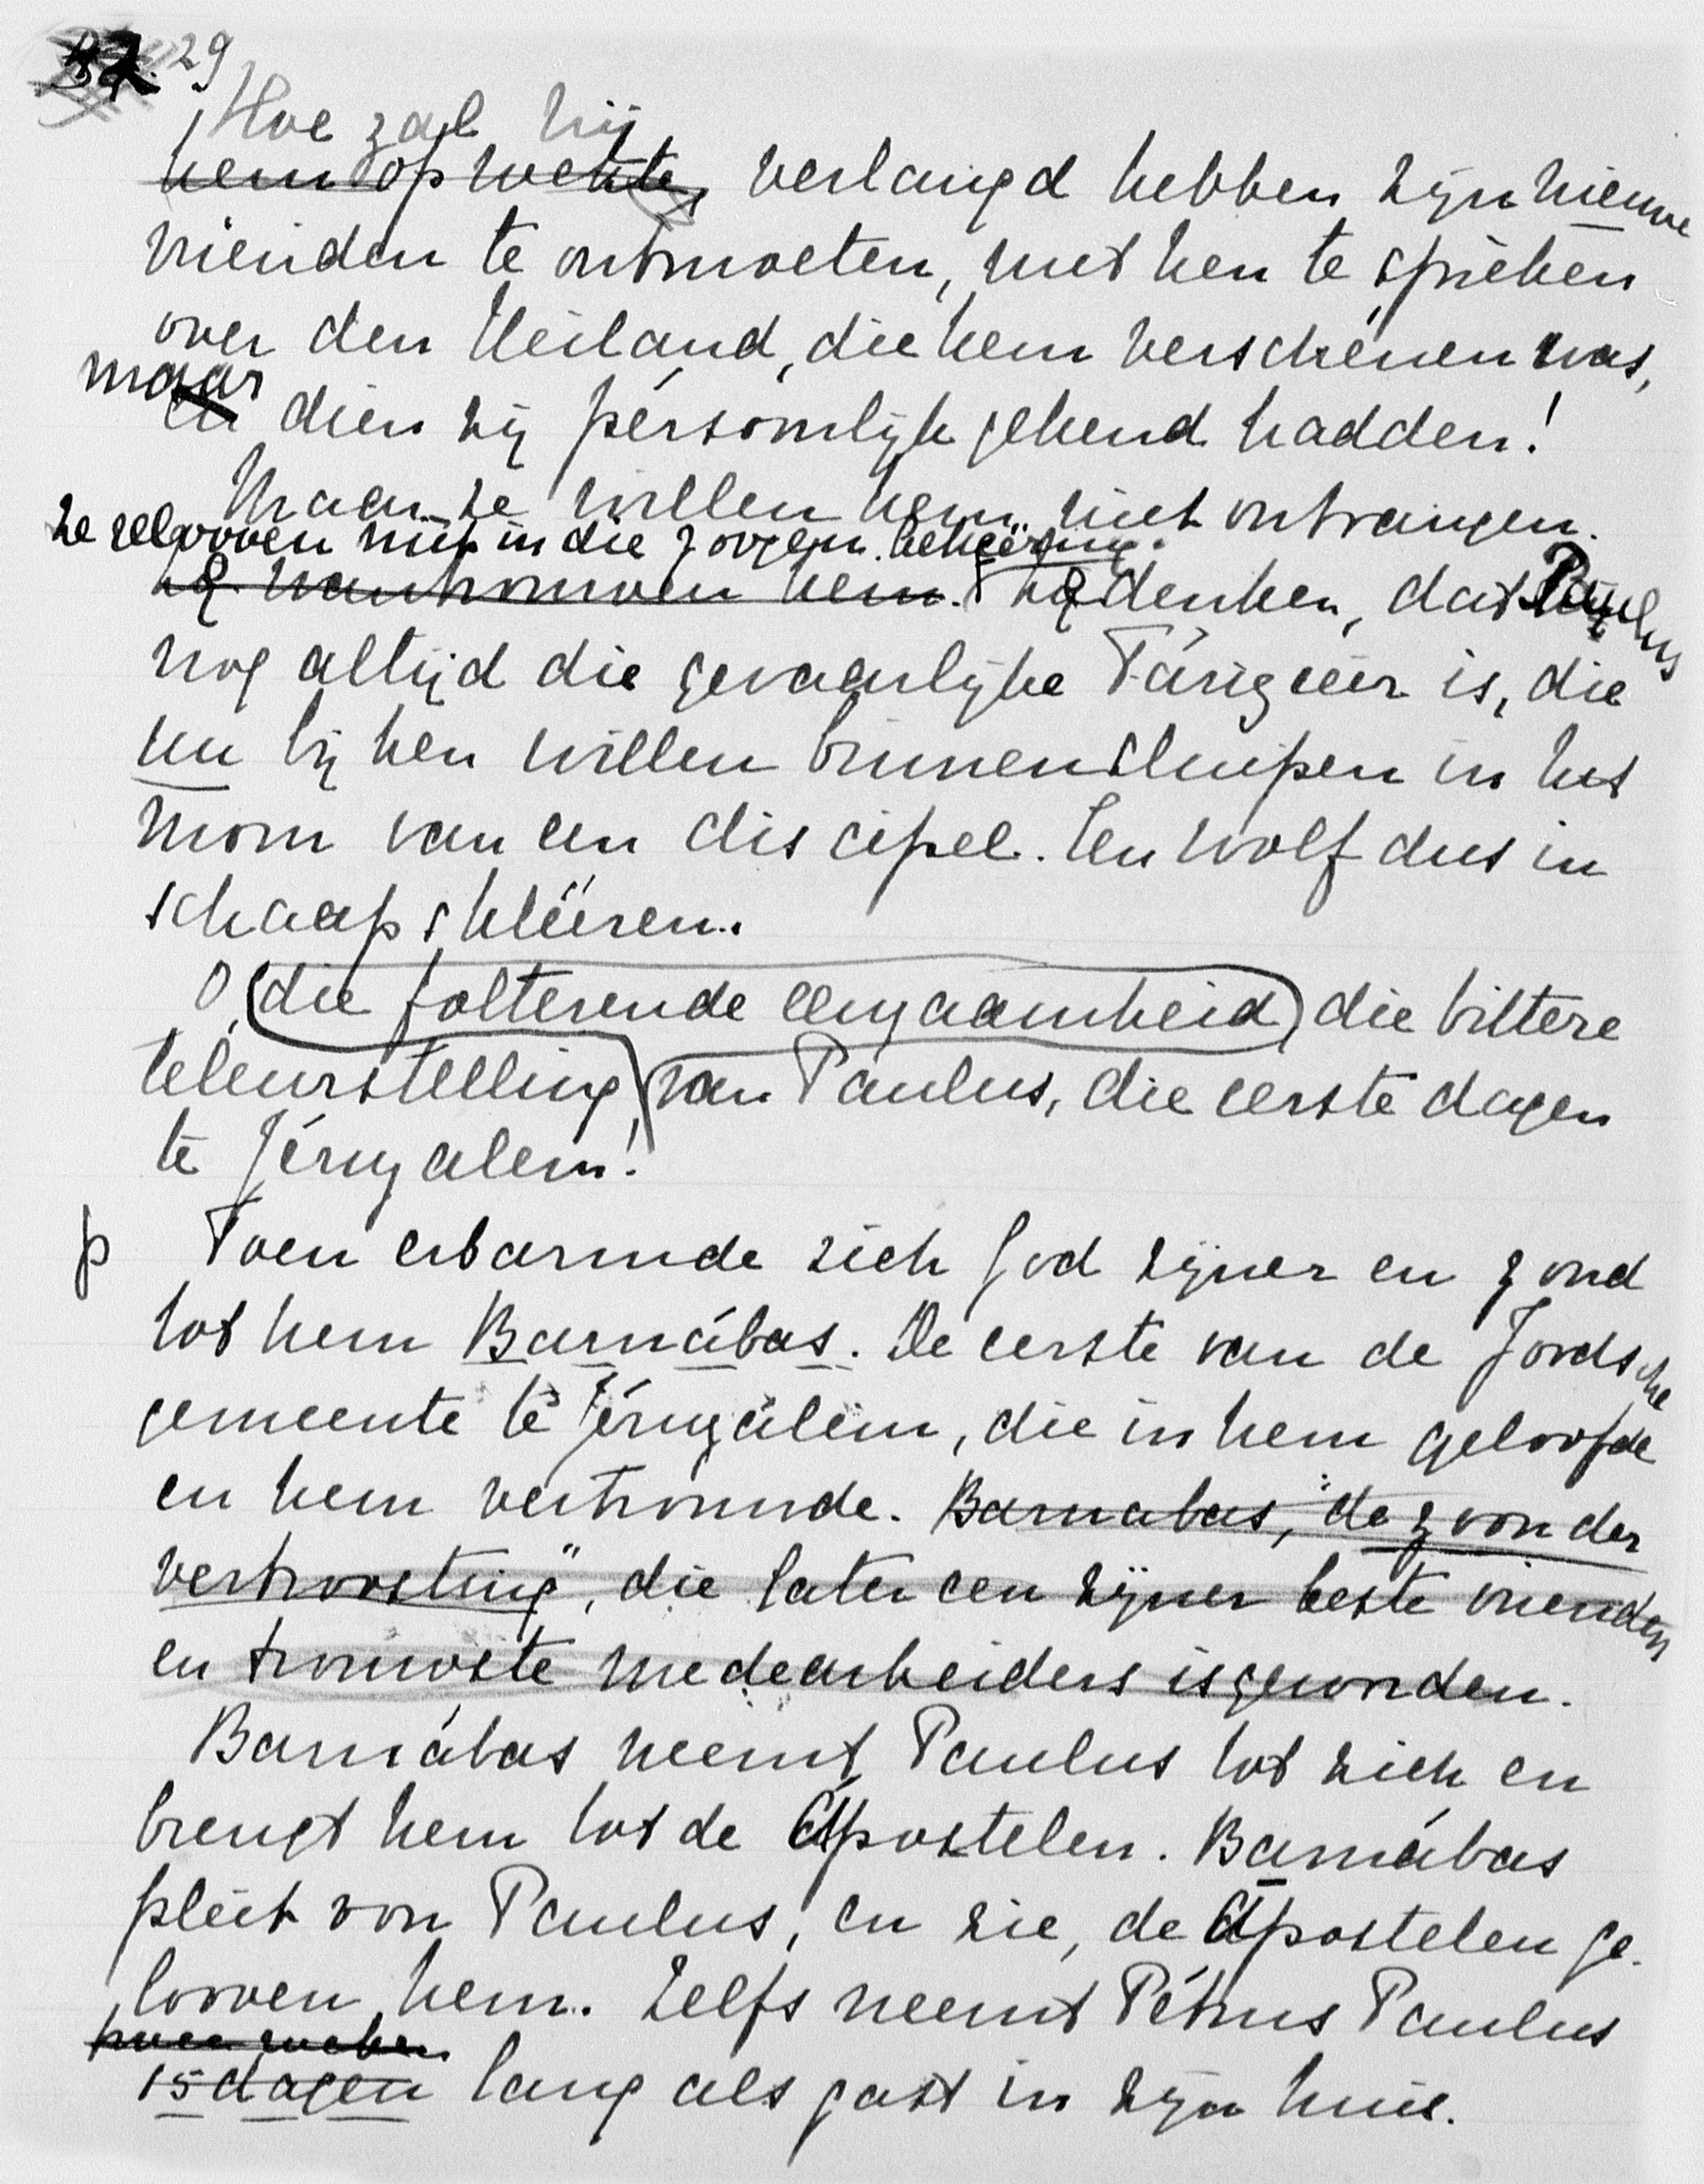 29
Hoe zal hij
hem opwekte, verlangd hebben zijn nieuwe
vrienden te ontmoeten, met hen te spreken
over den Heiland, die hem verschenen was,
maar
en dien zij persoonlijk gekend hadden!
Maar ze willen hem niet ontvangen.
Ze gelooven niet in die zoogen. bekeering.
Ze wantrouwen hem. Ze denken, dat Paulus
nog altijd die gevaarlijke Farizeër is, die
nu bij hen willen binnensluipen in het
mom van een discipel. Een wolf dus in
schaapskleeren.
O, die folterende eenzaamheid, die bittere
teleurstelling van Paulus, die eerste dagen
te Jéruzalem!
p Toen erbarmde zich God zijner en zond
tot hem Barnábas. De eerste van de Joodsche
gemeente te Jéruzálem, die in hem geloofde
en hem vertrouwde. Barnabas, "de zoon der
vertroosting", die later een zijner beste vrienden
en trouwste medearbeiders is geworden.
Barnábas neemt Paulus tot zich en
brengt hem tot de Apostelen. Barnábas
pleit voor Paulus, en zie, de Apostelen ge-
looven hem. Zelfs neemt Pétrus Paulus
twee weken
15 dagen lang als gast in zijn huis.